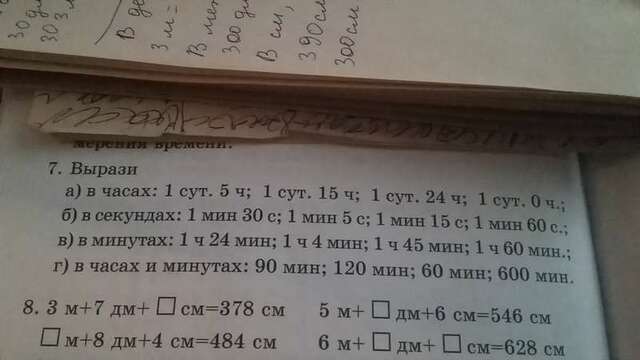 мерения времени.
7. Вырази
а) в часах: 1 сут. 5 ч; 1 сут. 15 ч; 1 сут. 24 ч; 1 сут. 0 ч.;
б) в секундах: 1 мин 30 с; 1 мин 5 с; 1 мин 15 с; 1 мин 60 с.;
в) в минутах: 1 ч 24 мин; 1 ч 4 мин; 1 ч 45 мин; 1 ч 60 мин.;
г) в часах и минутах: 90 мин; 120 мин; 60 мин; 600 мин.
8. 3 м+7 дм+ □ см=378 см 5 м+ □ дм+6 см=546 см
□ м+8 дм+4 см=484 см 6 м+ □ дм+ □ см=628 см
30 дм
303м
В де
3 м =
В мет
300 дм
В см,
390см
300см